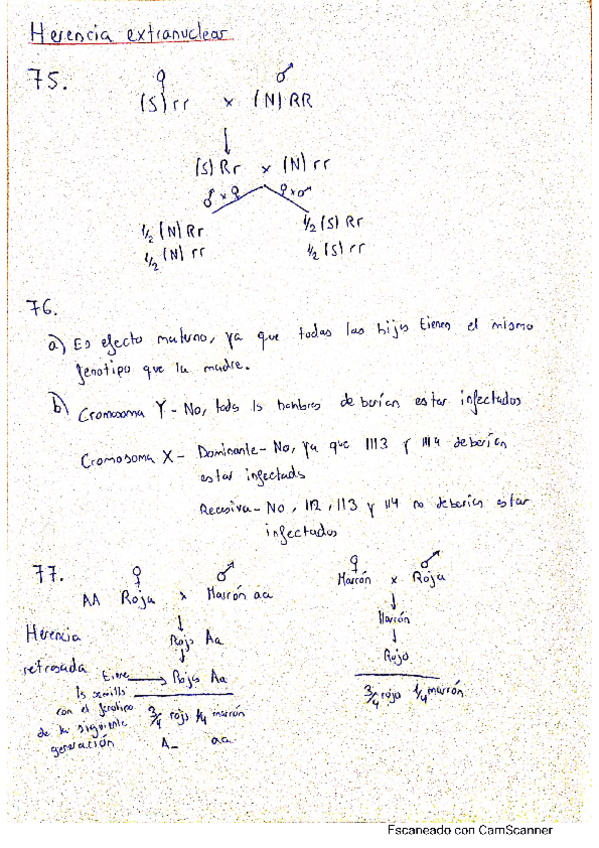 Herencia extranuclear
75.
♀ ♂
(S) rr x (N) RR
(S) Rr x (N) rr
♂ x ♀ ♀ x ♂
1/2 (N) Rr 1/2 (S) Rr
1/2 (N) rr 1/2 (S) rr
76.
a) Es efecto materno, ya que todas las hijas tienen el mismo
fenotipo que la madre.
b) Cromosoma Y - No, tods ls hombres deberían estar infectados
Cromosoma X - Dominante - No, ya que III3 y III4 deberían
estar infectads
Recesiva - No, II2, II3 y II4 no deberían estar
infectados
77.
♀ ♂ ♀ ♂
AA Roja x Marrón aa Marrón x Roja
Rojo Aa Marrón
Herencia retrasada
Rojas Aa Rojo
Tiene ls semills con el fenotipo de la siguiente generación
3/4 rojo 1/4 marrón 3/4 rojo 1/4 marrón
A_ aa
Escaneado con CamScanner